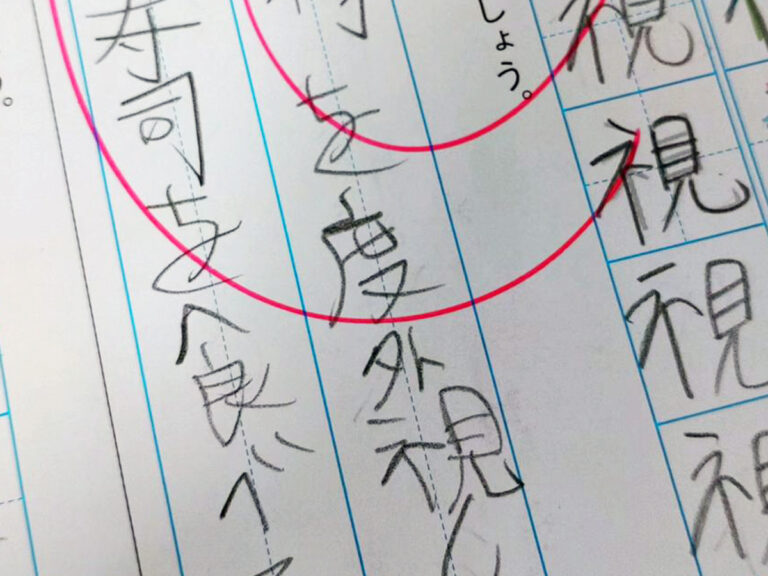 視
視
視
しょう。
を度外視し
寿司を食べ
。